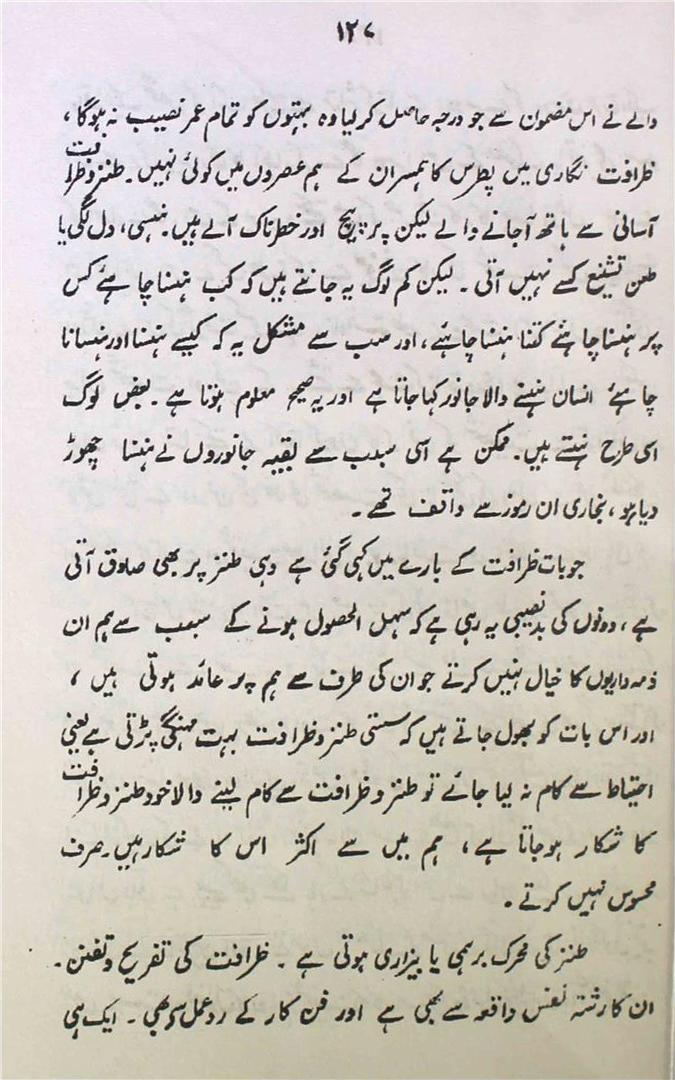 ۱۲۷
والے نے اس مضمون سے جو درجہ حاصل کر لیا وہ بہتوں کو تمام عمر نصیب نہ ہوگا،
ظرافت نگاری میں پطرس کا ہمسران کے ہم عصروں میں کوئی نہیں۔ طنز و ظرافت
آسانی سے ہاتھ آجانے والے لیکن پر پیچ اور خطرناک آلے ہیں۔ ہنسی، دل لگی یا
طعن تشنیع کسے نہیں آتی۔ لیکن کم لوگ یہ جانتے ہیں کہ کب ہنسنا چاہئے کس
پر ہنسنا چاہئے کتنا ہنسنا چاہئے، اور سب سے مشکل یہ کہ کیسے ہنسنا اور ہنسانا
چاہئے انسان ہنسنے والا جانور کہا جاتا ہے اور یہ صحیح معلوم ہوتا ہے۔ بعض لوگ
اسی طرح ہنستے ہیں۔ ممکن ہے اسی سبب سے بقیہ جانوروں نے ہنسنا چھوڑ
دیا ہو، بخاری ان رموز سے واقف تھے۔
جو بات ظرافت کے بارے میں کہی گئی ہے وہی طنز پر بھی صادق آتی
ہے، دونوں کی بدنصیبی یہ رہی ہے کہ سہل الحصول ہونے کے سبب سے ہم ان
ذمہ داریوں کا خیال نہیں کرتے جو ان کی طرف سے ہم پر عائد ہوتی ہیں،
اور اس بات کو بھول جاتے ہیں کہ سستی طنز و ظرافت بہت مہنگی پڑتی ہے یعنی
احتیاط سے کام نہ لیا جائے تو طنز و ظرافت سے کام لینے والا خود طنز و ظرافت
کا شکار ہو جاتا ہے، ہم میں سے اکثر اس کا شکار ہیں۔ صرف
محسوس نہیں کرتے۔
طنز کی محرک برہمی یا بیزاری ہوتی ہے۔ ظرافت کی تفریح و تفنن۔
ان کا رشتہ نفس واقعہ سے بھی ہے اور فن کار کے ردعمل سے بھی۔ ایک ہی